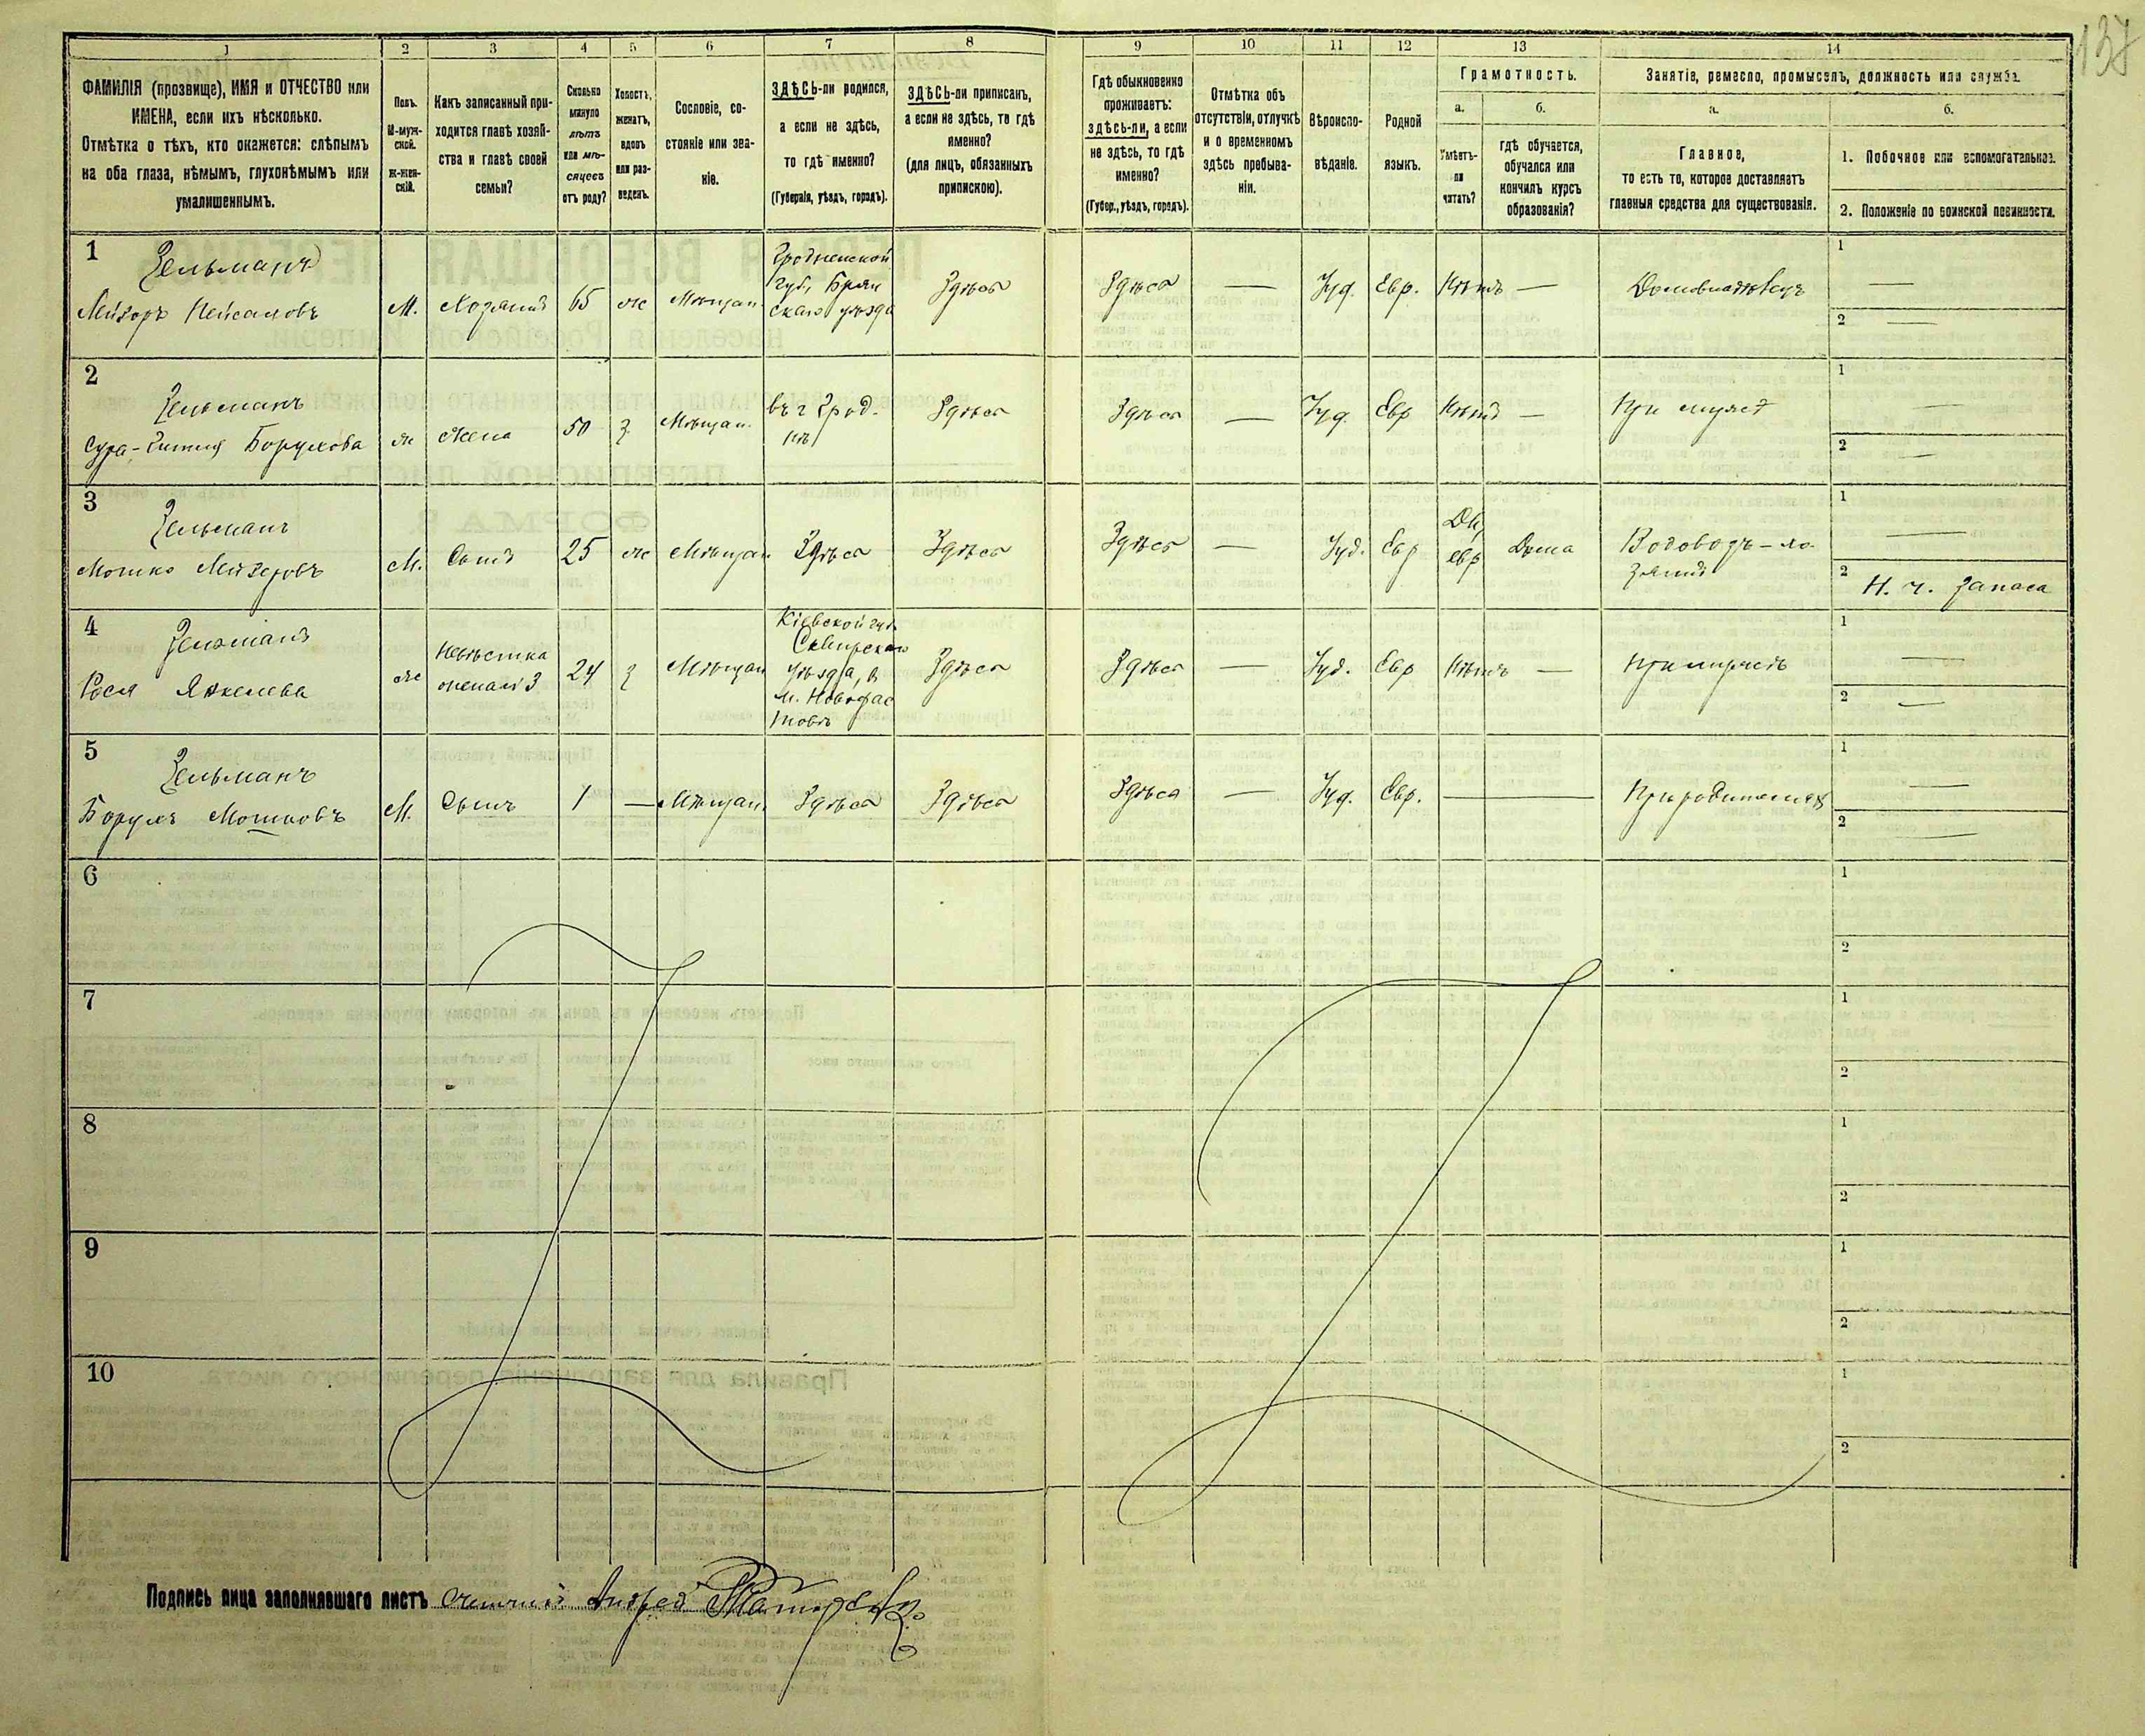 137
1 2 3 4 5 6 7 8 9 10 11 12 13 14
ФАМИЛІЯ (прозвище), ИМЯ и ОТЧЕСТВО или
ИМЕНА, если ихъ нѣсколько.
Отмѣтка о тѣхъ, кто окажется: слѣпымъ
на оба глаза, нѣмымъ, глухонѣмымъ или
умалишеннымъ.
Полъ.
М-муж-
ской.
Ж-жен-
скій.
Какъ записанный при-
ходится главѣ хозяй-
ства и главѣ своей
семьи?
Сколько
минуло
лѣтъ
или мѣ-
сяцевъ
отъ роду?
Холостъ,
женатъ,
вдовъ
или раз-
веденъ.
Сословіе, со-
стояніе или зва-
ніе.
ЗДѢСЬ-ли родился,
а если не здѣсь,
то гдѣ именно?
(Губернія, уѣздъ, городъ).
ЗДѢСЬ-ли приписанъ,
а если не здѣсь, то гдѣ
именно?
(для лицъ, обязанныхъ
припискою).
Гдѣ обыкновенно
проживаетъ:
здѣсь-ли, а если
не здѣсь, то гдѣ
именно?
(Губер., уѣздъ, городъ).
Отмѣтка объ
отсутствіи, отлучкѣ
и о временномъ
здѣсь пребыва-
ніи.
Вѣроиспо-
вѣданіе.
Родной
языкъ.
Грамотность.
а.
Умѣетъ-
ли
читать?
б.
гдѣ обучается,
обучался или
кончилъ курсъ
образованія?
Занятіе, ремесло, промыселъ, должность или служба.
а.
Главное,
то есть то, которое доставляетъ
главныя средства для существованія.
б.
1. Побочное или вспомогательное.
2. Положеніе по воинской повинности.
1
Зельманъ
Лейзоръ Нейсаховъ
М.
Хозяинъ
65
ж
Мѣщан.
Гродненской
губ, Брян
скаго уѣзда
Здѣсь
Здѣсь
—
Іуд.
Евр.
Нѣтъ
—
Домовладѣлецъ
1 —
2 —
2
Зельманъ
Сура-Битля Борухова
ж
Жена
50
з
Мѣщан.
въ г Грод-
нѣ
Здѣсь
Здѣсь
—
Іуд.
Евр
Нѣтъ
—
При мужѣ
1 —
2 —
3
Зельманъ
Мошко Лейзеровъ
М.
Сынъ
25
ж
Мѣщан
Здѣсь
Здѣсь
Здѣсь
—
Іуд.
Евр
Да,
евр
Дома
Водовозъ-хо-
зяинъ
1 —
2 Н. ч. запаса
4
Зельманъ
Рося Янкелева
ж
Невѣстка
жена 3
24
з
Мѣщан
Кіевской губ.
Сквирскаго
уѣзда, в
м. Новофас
товѣ
Здѣсь
Здѣсь
—
Іуд.
Евр
Нѣтъ
—
При мужѣ
1 —
2 —
5
Зельманъ
Борухъ Мошковъ
М.
Сынъ
1
—
Мѣщан.
Здѣсь
Здѣсь
Здѣсь
—
Іуд.
Евр.
—
При родителяхъ
1 —
2 —
6
1
2
7
1
2
8
1
2
9
1
2
10
1
2
Подпись лица заполнявшаго листъ Счетчикъ Андрей